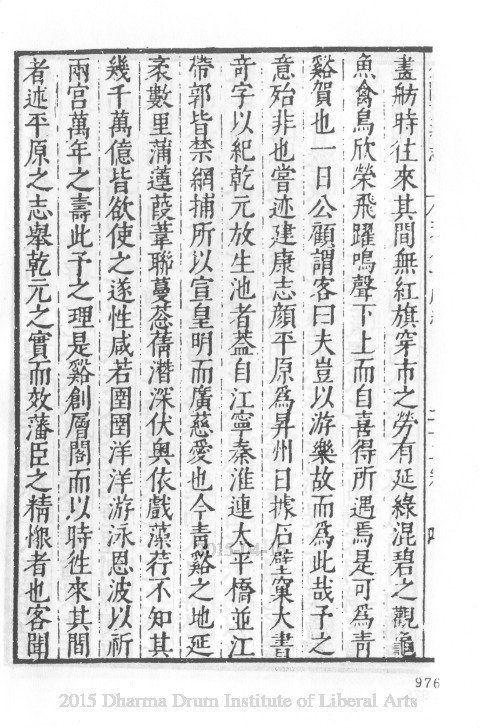 畫舫時往來其間無紅旗穿市之勞有延綠混碧之觀龜
魚禽鳥欣榮飛躍鳴聲下上而自喜得所遇焉是可爲青
谿賀也一日公顧謂客曰夫豈以游樂故而爲此哉予之
意殆非也嘗迹建康志顔平原爲昇州日據石壁窠大書
奇字以紀乾元放生池者葢自江寧秦淮連太平橋並江
帶郭皆禁網捕所以宣皇明而廣慈愛也今青谿之地延
袤數里蒲蓮葭葦聯蔓
潛深伏奥依戲藻荇不知其
幾千萬億皆欲使之遂性咸若圉圉洋洋游泳恩波以祈
兩宮萬年之壽此予之理是谿創層閣而以時徃來其間
者述平原之志舉乾元之實而效藩臣之精悃者也客聞
976
2015 Dharma Drum Institute of Liberal Arts